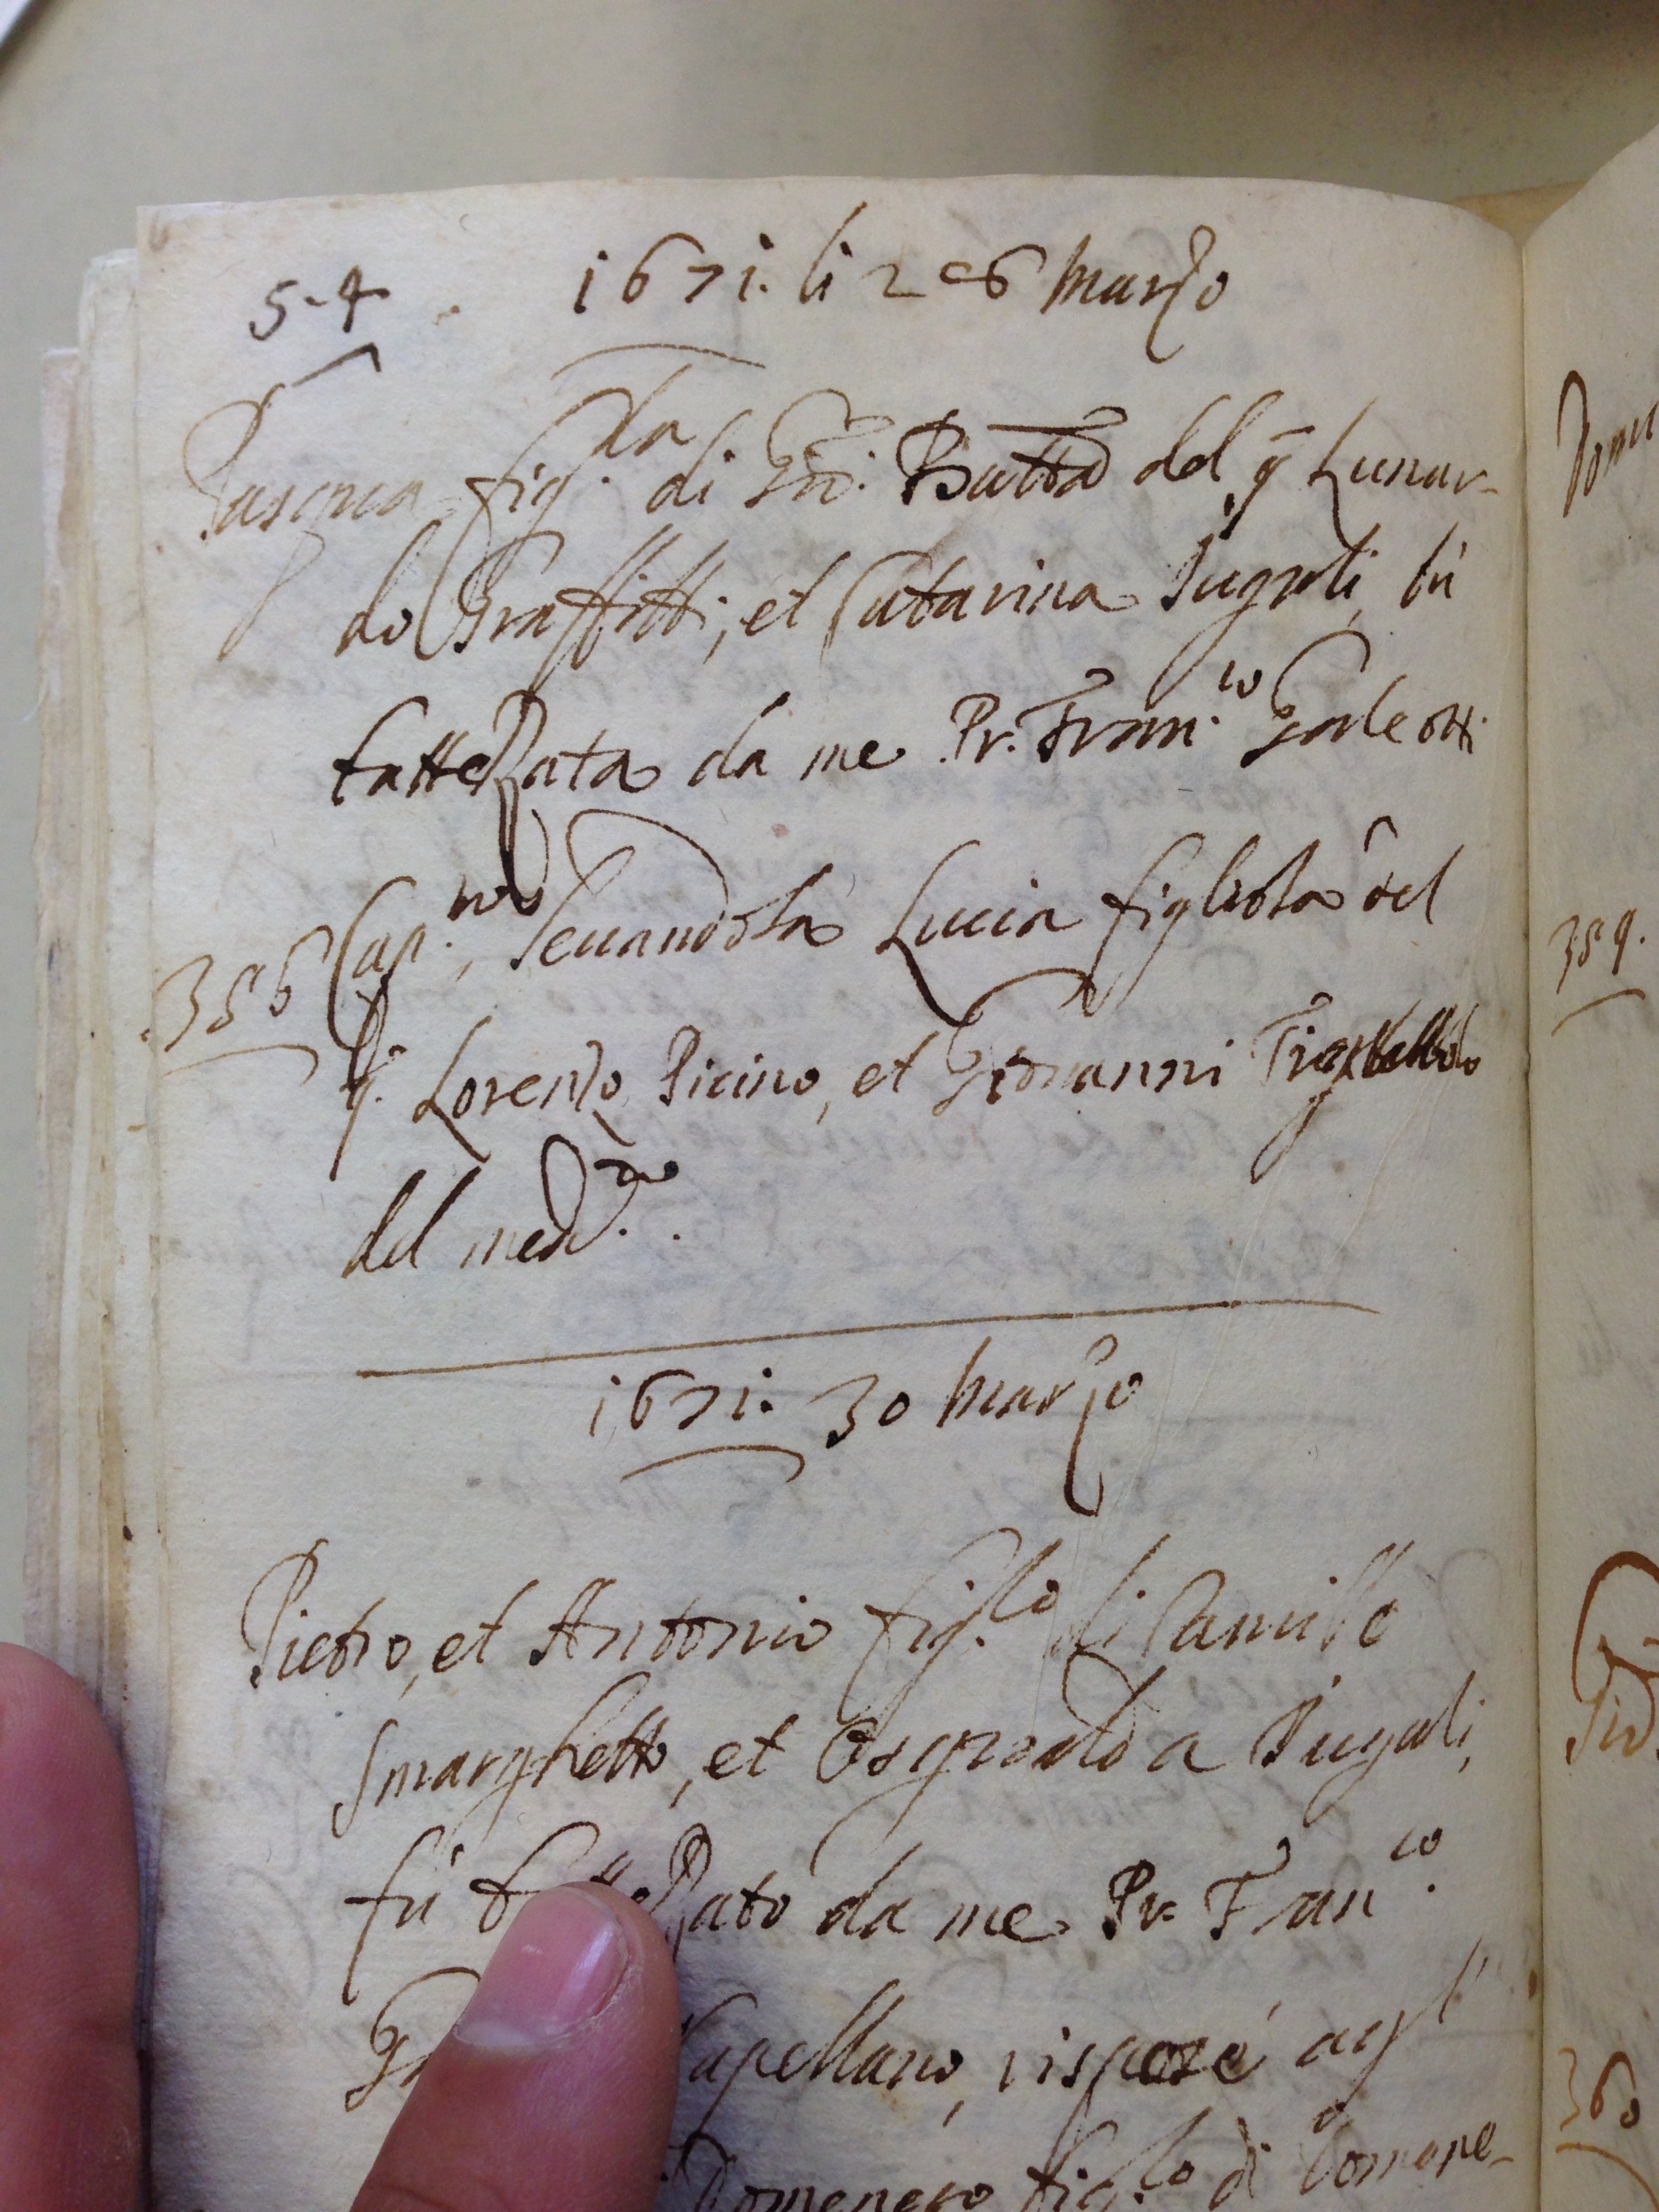 5-4 1671. li 26 Marzo
Pasqua fig.la di Gio: Batta del q. Lunar-
do Graffitti, et Catarina Jugali, fù
battezzata da me Pr. Fran.co Galeotti
Cap.no, levandola Lucia figliola del
356
q. Lorenzo Picino, et Giovanni
del med.mo.
1671. 30 Marzo
Pietro, et Antonio fig.lo di Camillo
Smarghetto, et Osgualda Jugali,
fù da me Pr. Fran.co
Capellano, rispose agl'
Domenego fig.lo di Domene-
359.
360